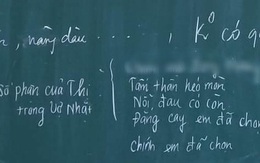 nàng dâu ....., kº có
Số phận của Thị
trong Vợ Nhặt
Tâm thần héo mòn
Nỗi đau có con
Đắng cay em đã chọn
chính em đã chọn